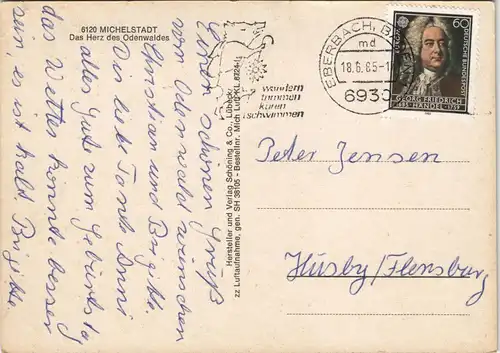 6120 MICHELSTADT
Das Herz des Odenwaldes
Einen schönen Gruß
vom Odenwald wünschen
Christian und Brigitte.
Die liebe Tante Anni
alles gute zum Geburtstag
das Wetter könnte besser
sein es ist kalt Brigitte
Hersteller und Verlag Schöning & Co., Lübeck
zz Luftaufnahme, gen. SH 38105 - Bestellnr. Mich
wandern
kuren
schwimmen
EBERBACH, B
md
18.6.85-1
6930
EUROPA
60
DEUTSCHE BUNDESPOST
GEORG FRIEDRICH
1685 · HANDEL · 1759
Peter Jensen
Husby/Flensburg